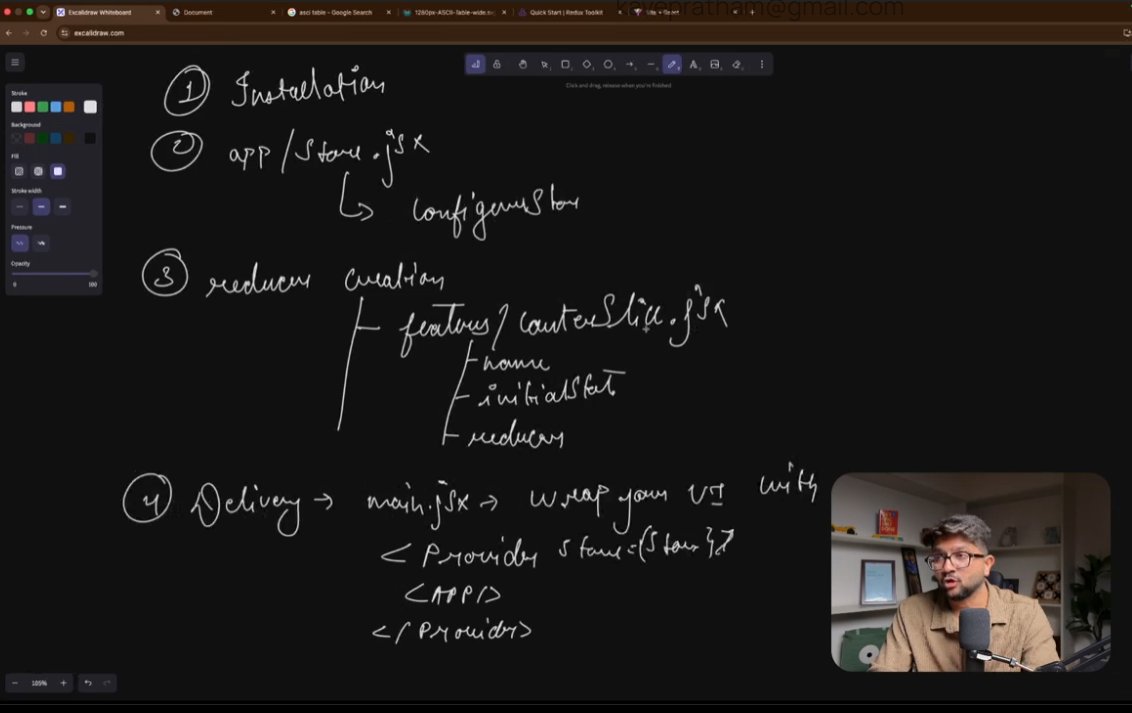 Excalidraw Whiteboard
Document
asci table - Google Search
1280px-ASCII-Table-wide.sv
Quick Start | Redux Toolkit
kavenpratham@gmail.com
excalidraw.com
Click and drag, release when you're finished
Stroke
Background
Fill
Stroke width
Pressure
Opacity
0 100
① Installation
② app/store.jsx
↳ configureStore
③ reducer creation
features/counterSlice.jsx
name
initialState
reducers
④ Delivery → main.jsx → wrap your UI with
<Provider store={store}>
<APP/>
</Provider>
- 109% +